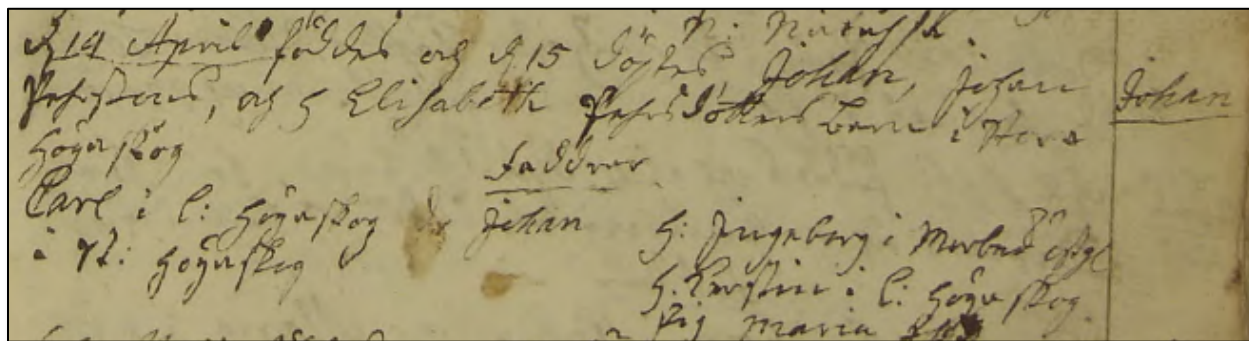 d 14 April föddes och d. 15 döptes, Johan, Johan
Johan
Pehrssons, och h Elisabeth Pehrsdotters barn i Stora
Högaskog
Faddrar
Carl i l: Högaskog Johan
i St: Högaskog
h: Ingeborg i
h. Kerstin i l: Högaskog
Pig Maria